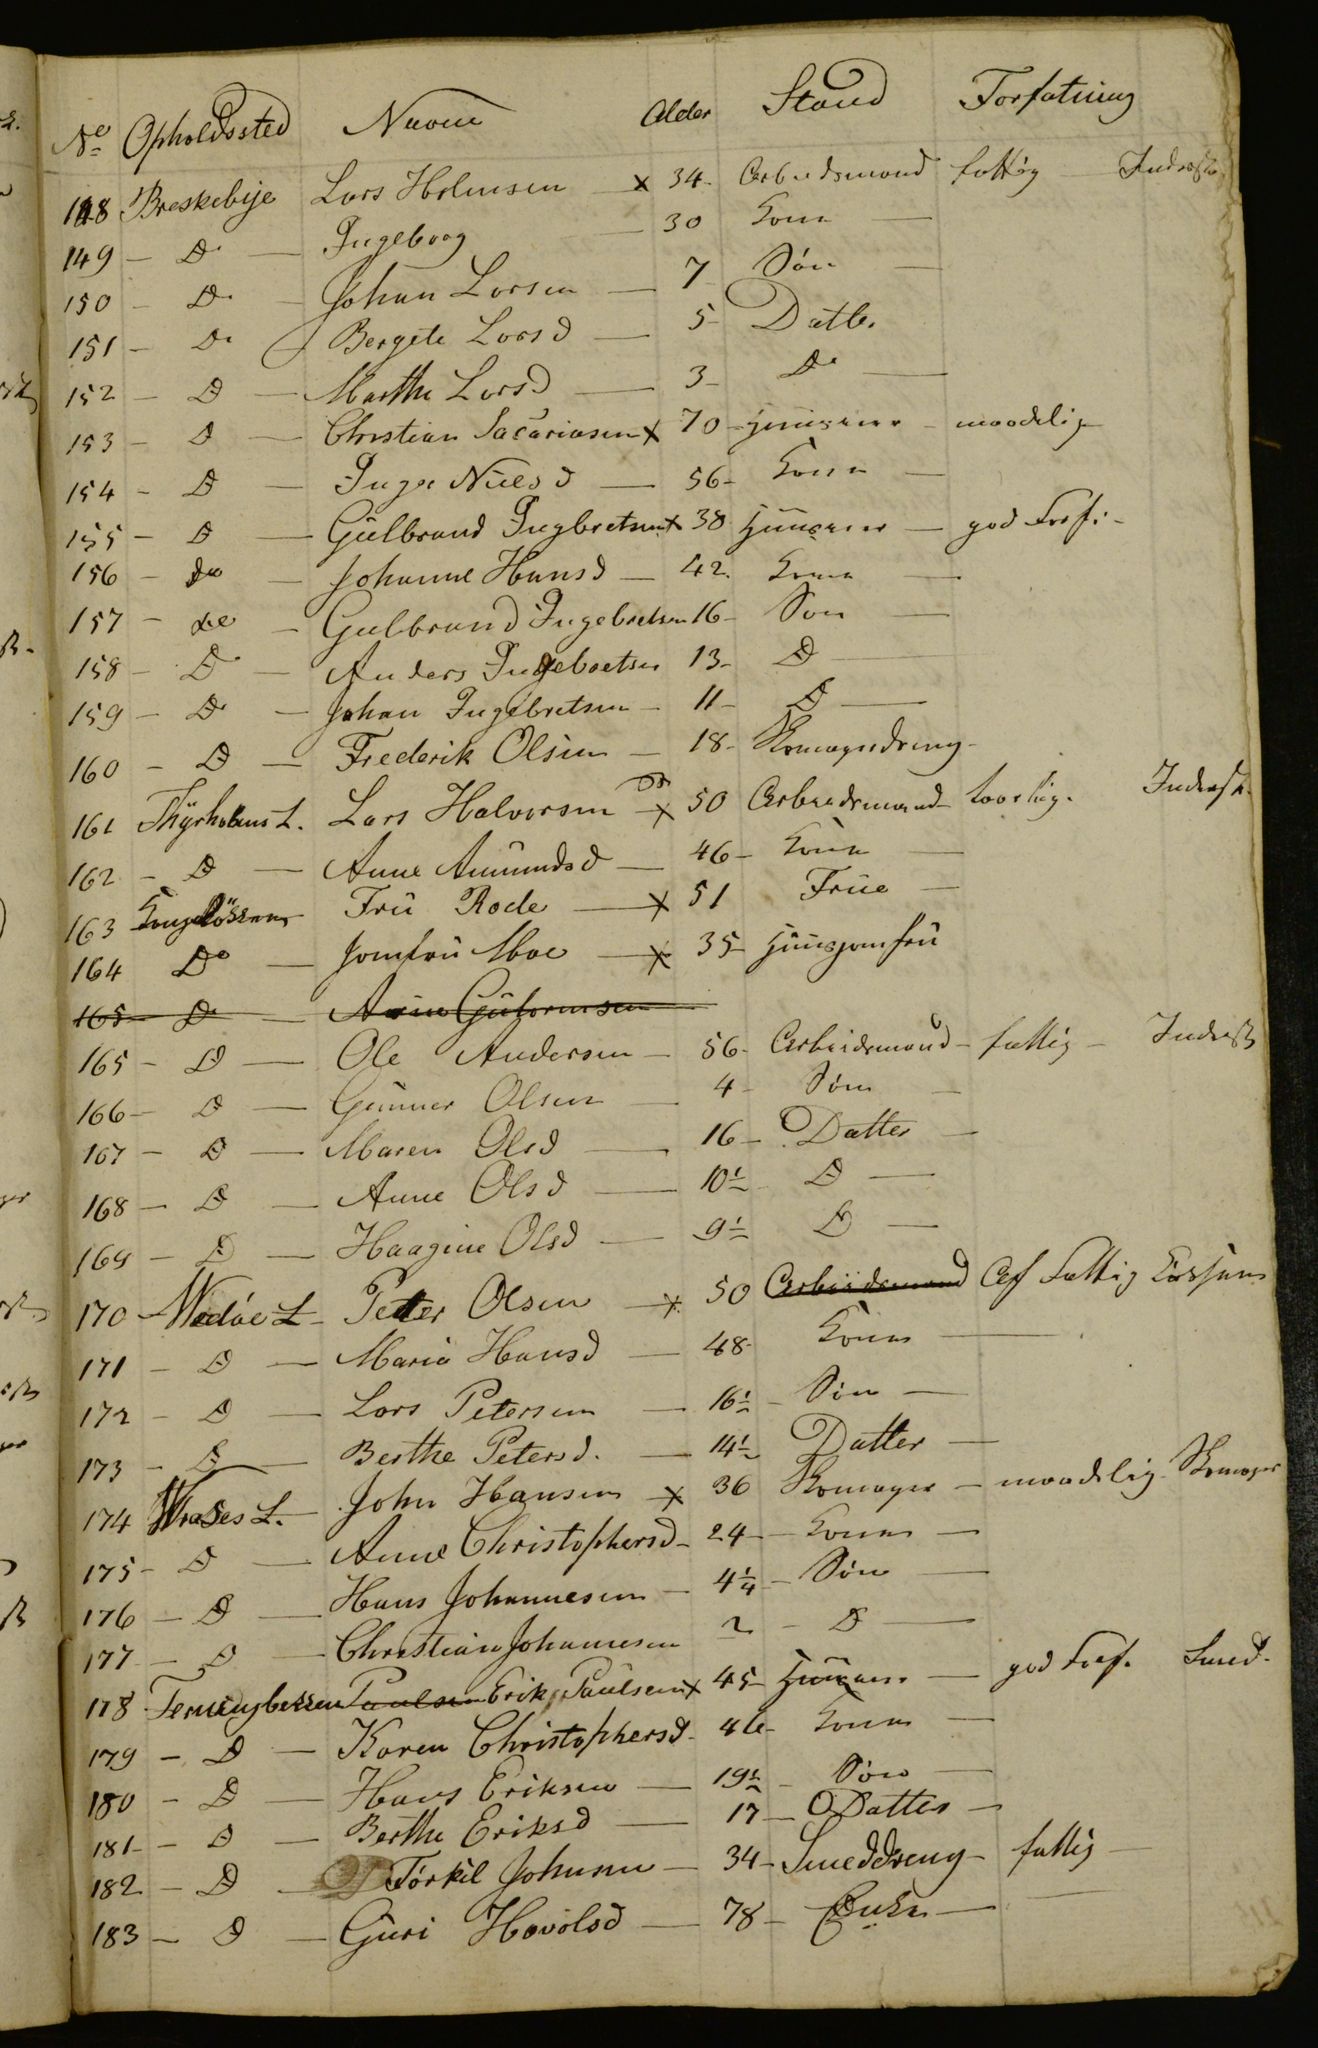 No Opholdssted Navne Alder Stand Forfatning
148 Breskebye Lars Holmsen x 34 Arbeidsmand fattig Inderst
149 - Do - Ingeborg - 30 Kone -
150 - Do - Johan Larsen - 7 Søn -
151 - Do Bergete Larsd - 5 - Datter
152 - D - Marthe Larsd - 3 - Do -
153 - D - Christian Sacariasen x 70 - Huusmand - maadelig
154 - D - Inger Nielsd - 56 - Kone -
155 - D - Gülbrand Ingbretsen x 38 Huusmand - god Forf: -
156 - do - Johanne Hansd - 42 Kone -
157 - do - Gulbrand Ingebretsen 16 - Søn -
158 - D - Anders Ingebretsen 13 - D -
159 - Do - Johan Ingebretsen - 11 - D -
160 - D - Frederik Olsen - 18 - Skomagerdreng -
161 Thÿrholms L. Lars Halvorsen x 50 Arbeidsmand taarlig. Inderst
162 - D - Anne Amundsd - 46 - Kone -
163 Frü Rode - x 51 Früe -
164 Do - Jomfrü Moe - x 35 - Huusjomfrü
165 - D - Gutormsen
165 - D - Ole Andersen - 56 - Arbeidsmand - fattig - Inderst
166 - D - Gunner Olsen - 4 - Søn -
167 - D - Maren Olsd - 16 - Datter -
168 - D - Anne Olsd - 10½ D -
169 - D - Haagine Olsd - 9½ D -
170 - L - Peter Olsen - x 50 Arbeidsmand Af Fattig Cassen
171 - D - Maria Hansd - 48 - Kone -
172 - D - Lars Petersen - 16½ - Søn -
173 - D - Berthe Petersd. - 14½ Datter -
174 L. John Hansen x 36 Skomager - maadelig - Skomager
175 - D - Anne Christophersd - 24 - Kone -
176 - D - Hans Johannesen - 4¼ - Søn -
177 - D - Christian Johannesen 2 - D -
178 Paulsen Erik Paülsen x 45 - Huusm. - god Forf. Smed.
179 - D - Karen Christophersd - Kone -
180 - D - Hans Eriksen - 19½ - Søn -
181 - D - Berthe Eriksd - 17 - Datter -
182 - D - Törkil Johnsen - 34 - Smeddreng - fattig -
183 - D - Guri Havolsd - 78 - Enke -